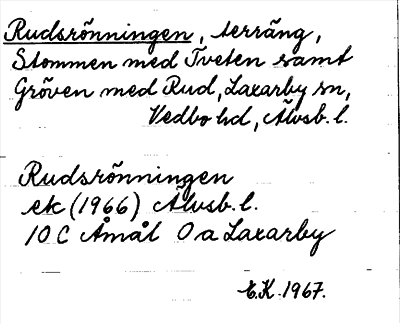 Rudsrönningen, terräng,
Stommen med Tveten samt
Gröven med Rud, Laxarby sn,
Vedbo hd, Älvsb. l.
Rudsrönningen
ek (1966) Älvsb. l.
10 C Åmål 0 a Laxarby
E.K. 1967.